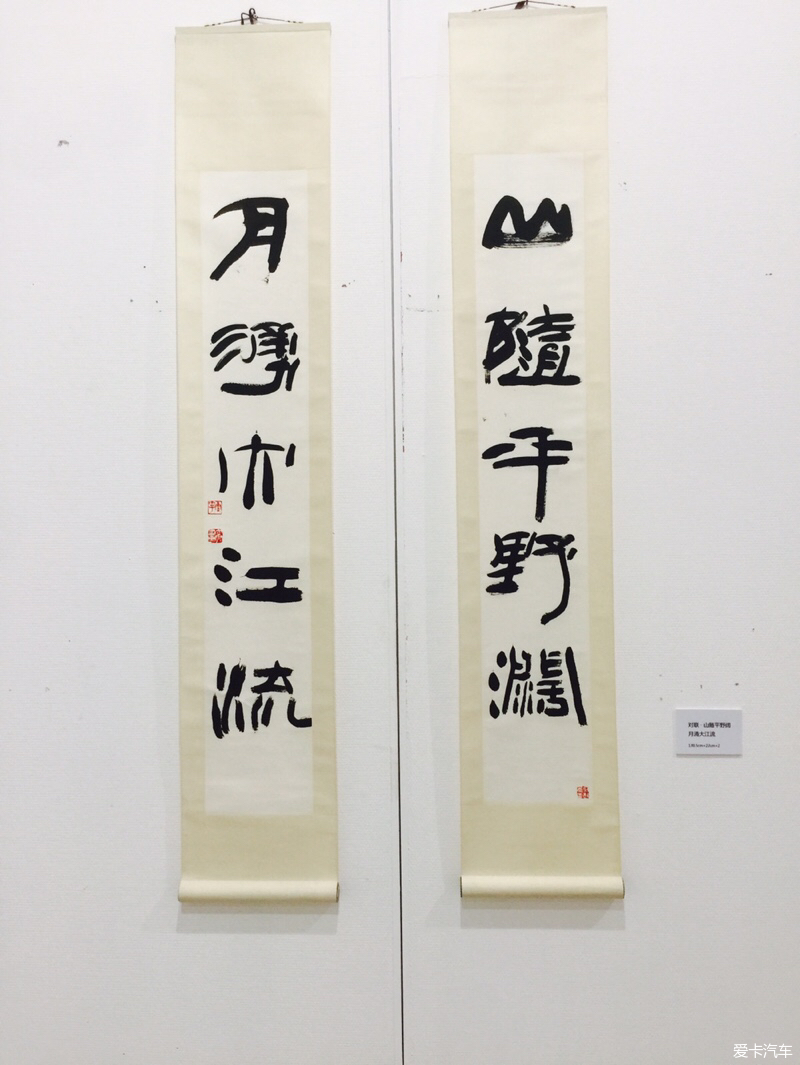 山隨平野濶
月湧大江流
对联·山随平野阔
月涌大江流
爱卡汽车